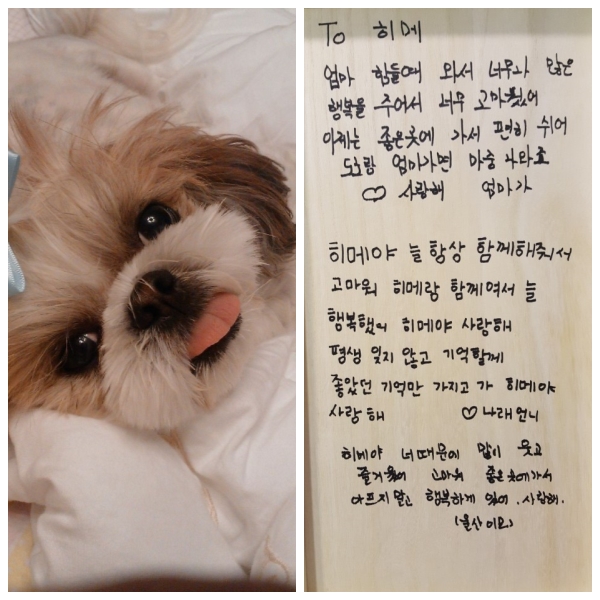 To 히메
엄마 힘들때 와서 너무나 많은
행복을 주어서 너무 고마웠어
이제는 좋은곳에 가서 편히 쉬어
엄마가면 마중 나와죠
♡ 사랑해 엄마가
히메야 늘 항상 함께해줘서
고마워 히메랑 함께여서 늘
행복했어 히메야 사랑해
평생 잊지 않고 기억할께
좋았던 기억만 가지고 가 히메야
사랑해 ♡ 나래언니
히메야 너때문에 많이 웃고
즐거웠어 고마워 좋은곳에가서
아프지말고 행복하게 있어. 사랑해.
(울산이모)